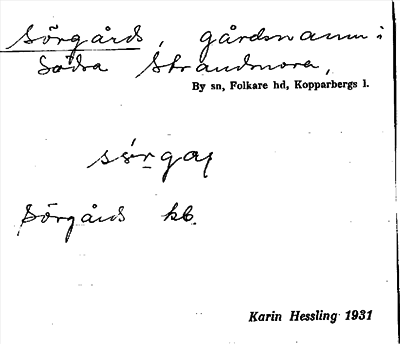 Sörgårds, gårdsnamn i
Södra Strandmora,
By sn, Folkare hd, Kopparbergs l.
Sörgårds kb.
Karin Hessling 1931